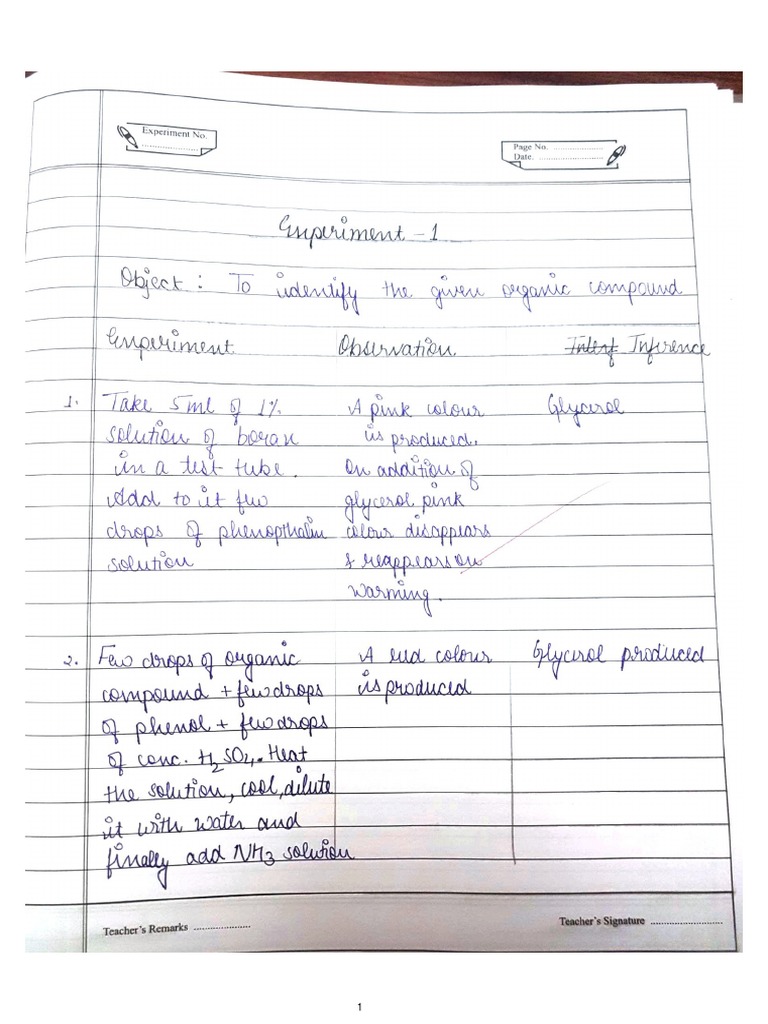 Experiment No.
....................
Page No. ....................
Date. ....................
Experiment - 1
Object : To identify the given organic compound
Experiment Observation Interf Inference
1. Take 5ml of 1% A pink colour Glycerol
solution of borax is produced.
in a test tube. On addition of
Add to it few glycerol pink
drops of phenopthalin colour disappears
solution & reappears on
warming.
2. Few drops of organic A red colour Glycerol produced
compound + few drops is produced
of phenol + few drops
of conc. H2SO4. Heat
the solution, cool, dilute
it with water and
finally add NH3 solution
Teacher's Remarks .................... Teacher's Signature ....................
1